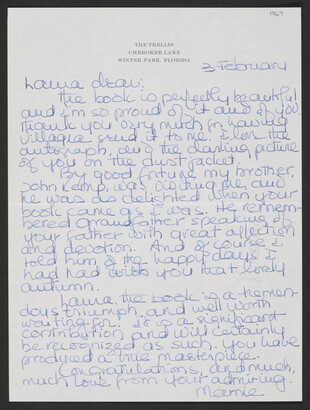 1969
THE TRELLIS
CHEROKEE LANE
WINTER PARK, FLORIDA
3 February
Laura dear:
The book is perfectly beautiful
and I'm so proud of it and of you.
Thank you very much for having
Villagrá send it to me. I love the
autograph, and the darling picture
of you on the dust jacket.
By good fortune my brother,
John Kemp, was visiting me, and
he was as delighted when your
book came as I was. He remem-
bered Grandfather's speaking of
your father with great affection
and devotion. And of course I
told him of the happy days I
had had with you that lovely
autumn.
Laura, the book is a tremen-
dous triumph, and well worth
waiting for. It is a significant
contribution and will certainly
be recognized as such. You have
produced a true masterpiece.
Congratulations, and much,
much love from your admiring
Marnie